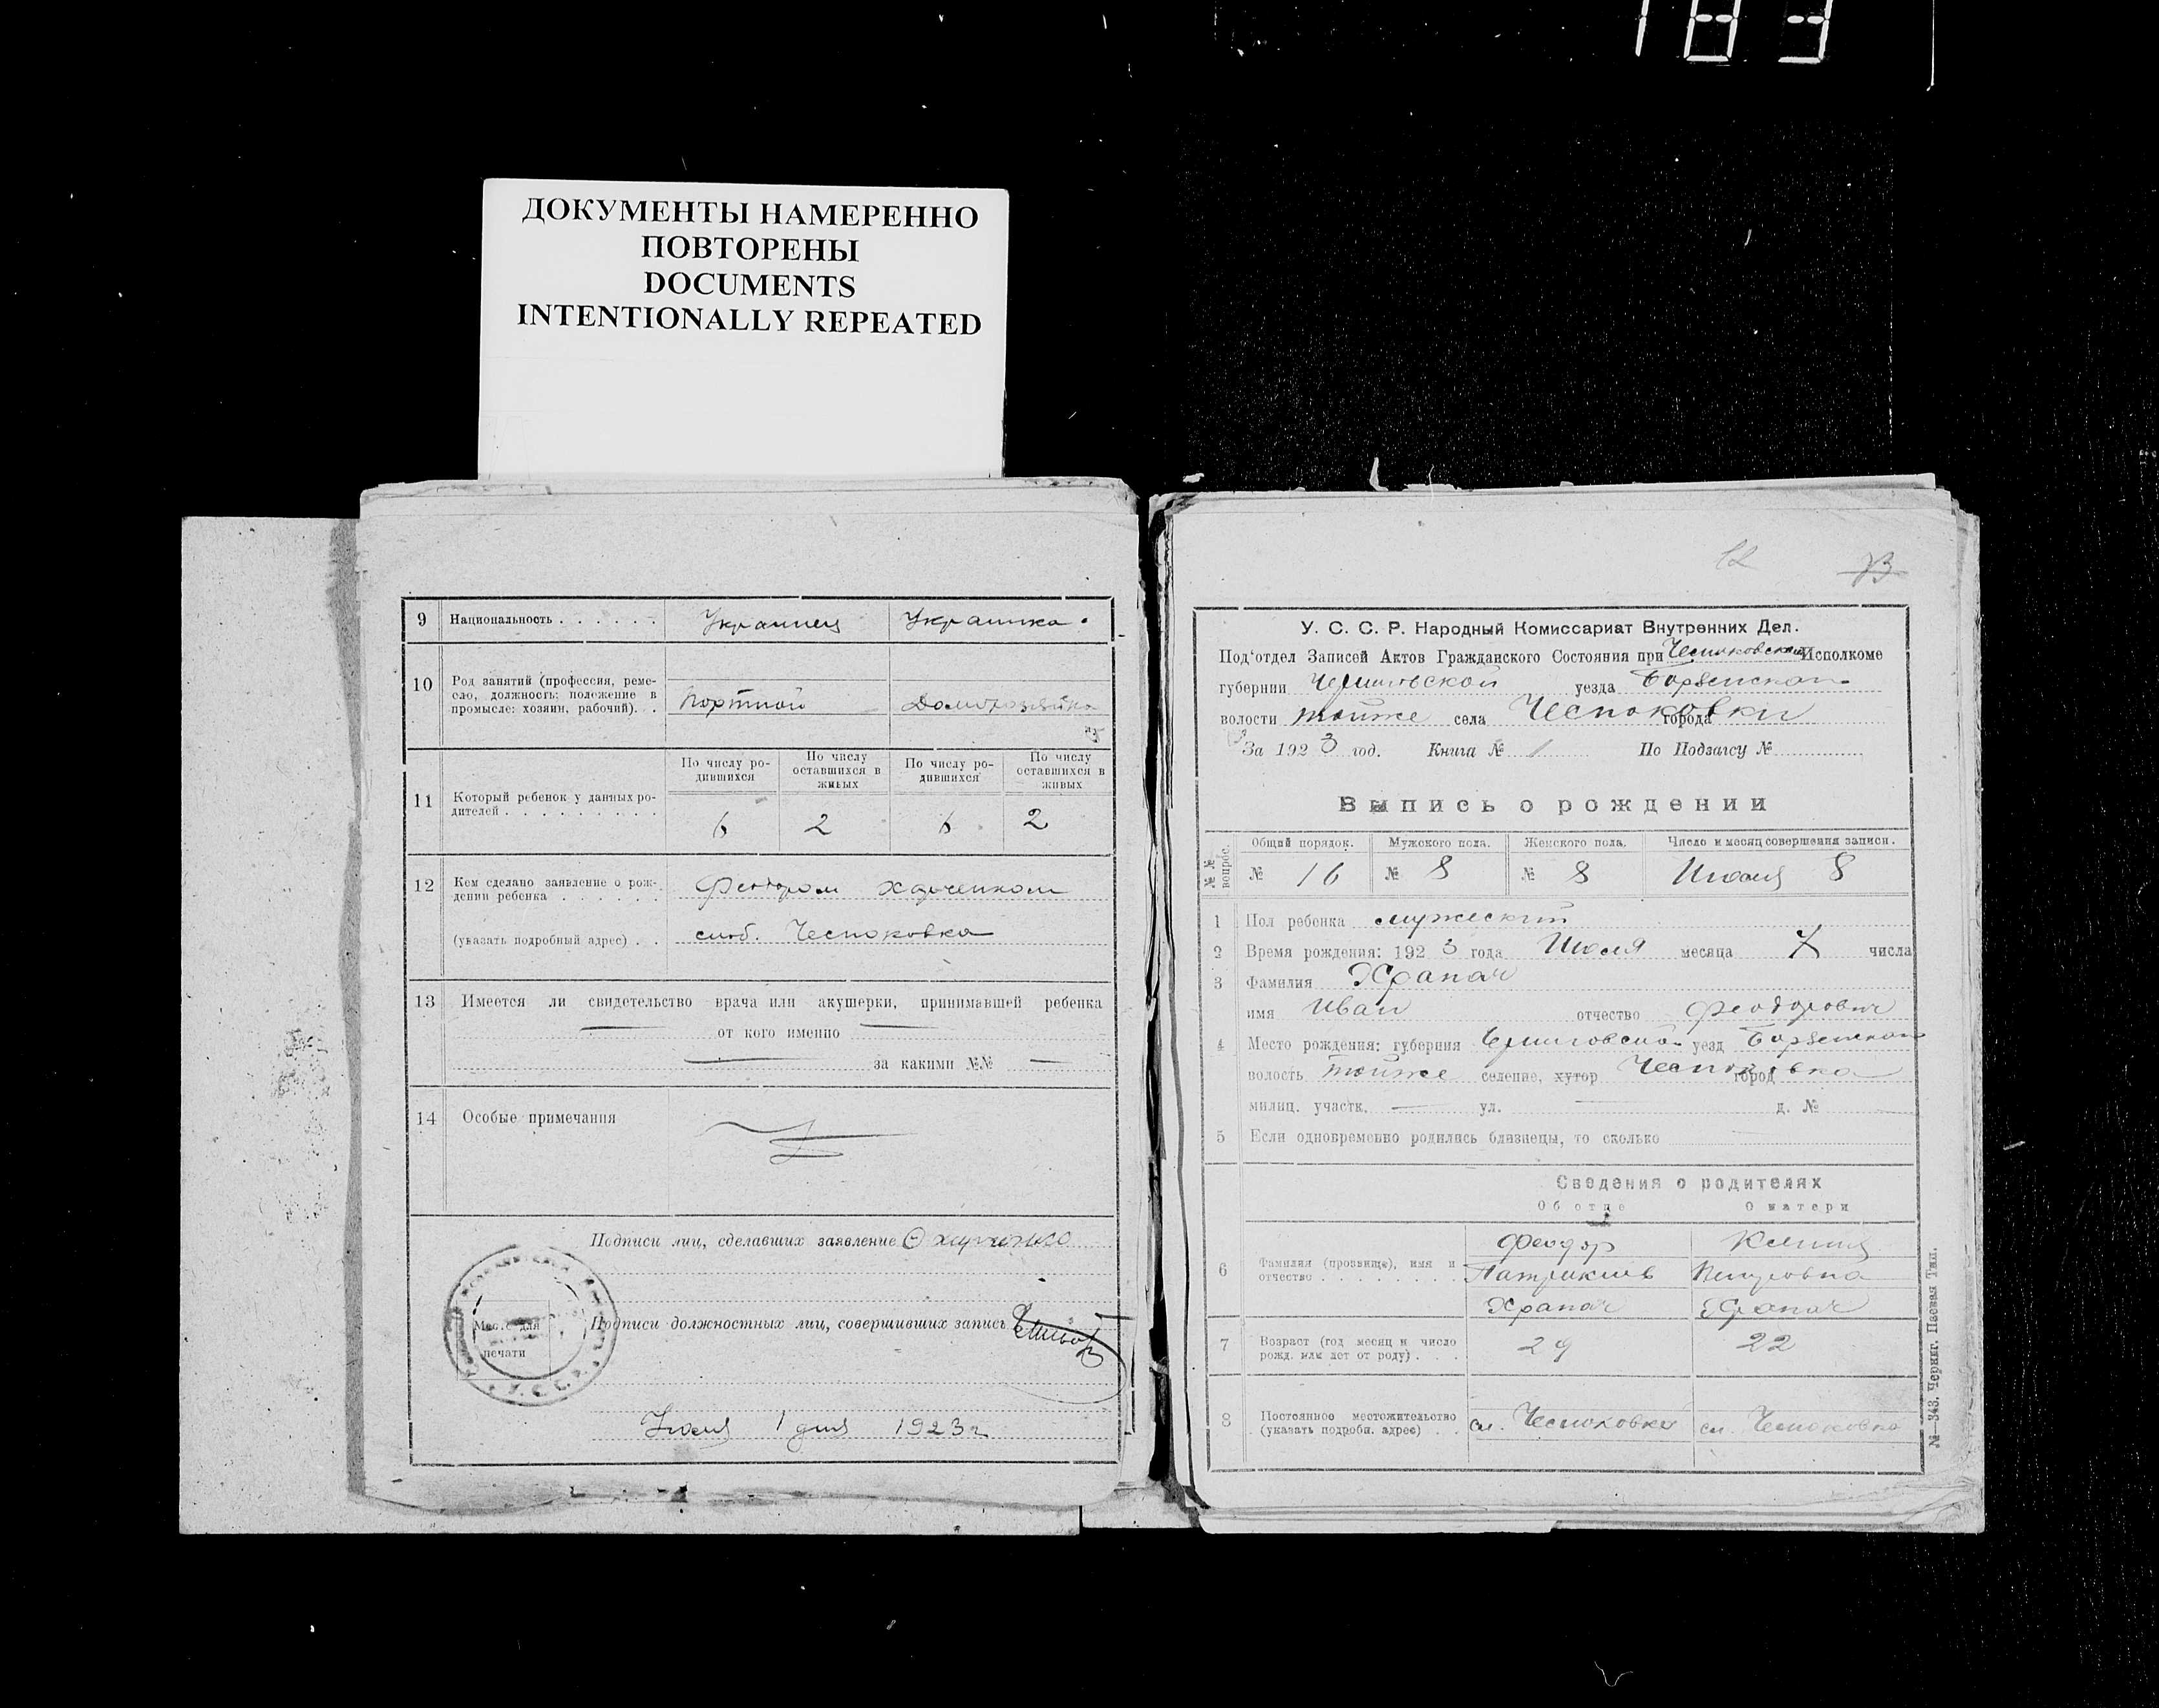 183
ДОКУМЕНТЫ НАМЕРЕННО
ПОВТОРЕНЫ
DOCUMENTS
INTENTIONALLY REPEATED
9 Национальность . . . . . . Украинец Украинка
10 Род занятий (профессия, реме-
сло, должность: положение в
промысле: хозяин, рабочий). . Портной Домохозяйка
По числу ро-
дившихся По числу
оставшихся в
живых По числу ро-
дившихся По числу
оставшихся в
живых
11 Который ребенок у данных ро-
дителей . . . . . . . . . 6 2 6 2
12 Кем сделано заявление о рож-
дении ребенка . . . . . . Феодором Харченком
(указать подробный адрес) . . слоб. Чесноковка
13 Имеется ли свидетельство врача или акушерки, принимавшей ребенка
от кого именно
за какими №№
14 Особые примечания
Подписи лиц, сделавших заявление Ѳ Харченко
Подписи должностных лиц, совершивших запись
Место для
печати
У. С. С. Р.
Июля 1 дня 1923 г
12 73
У. С. С. Р. Народный Комиссариат Внутренних Дел.
Под'отдел Записей Актов Гражданского Состояния при Чесноковском Исполкоме
губернии Черниговской уезда Борзенского
волости тойже села города Чесноковки
За 1923 год. Книга № 1 По Подзагсу №
Выпись о рождении
№ № вопрос. Общий порядок. Мужского пола. Женского пола. Число и месяц совершения записи.
№ 16 № 8 № 8 Июля 8
1 Пол ребенка мужеский
2 Время рождения: 1923 года Июля месяца 7 числа
3 Фамилия Храпач
имя Иван отчество Феодорович
4 Место рождения: губерния Черниговской уезд Борзенской
волость тойже селение, хутор город Чесноковка
милиц. участк. ул. д. №
5 Если одновременно родились близнецы, то сколько
Сведения о родителях
Об отце О матери
6 Фамилия (прозвище), имя и
отчество . . . . . . . . .
Феодор
Патрикиев
Храпач
Ксения
Петровна
Храпач
7 Возраст (год месяц и число
рожд. или лет от роду) . . . 29 22
8 Постоянное местожительство
(указать подробн. адрес) . . сл. Чесноковка сл. Чесноковка
№—343. Черниг. Паевая Тип.